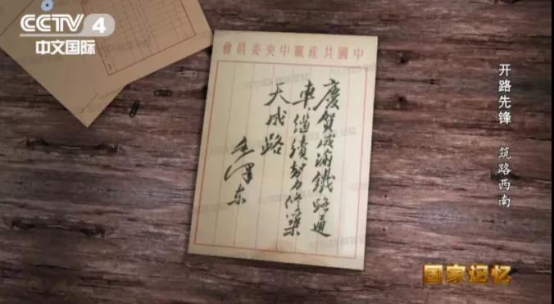 CCTV 4
中文国际
會員委央中黨產共國中
慶賀成渝鐵路通
車繼續努力修築
天成路
毛泽东
开路先锋 筑路西南
国家记忆